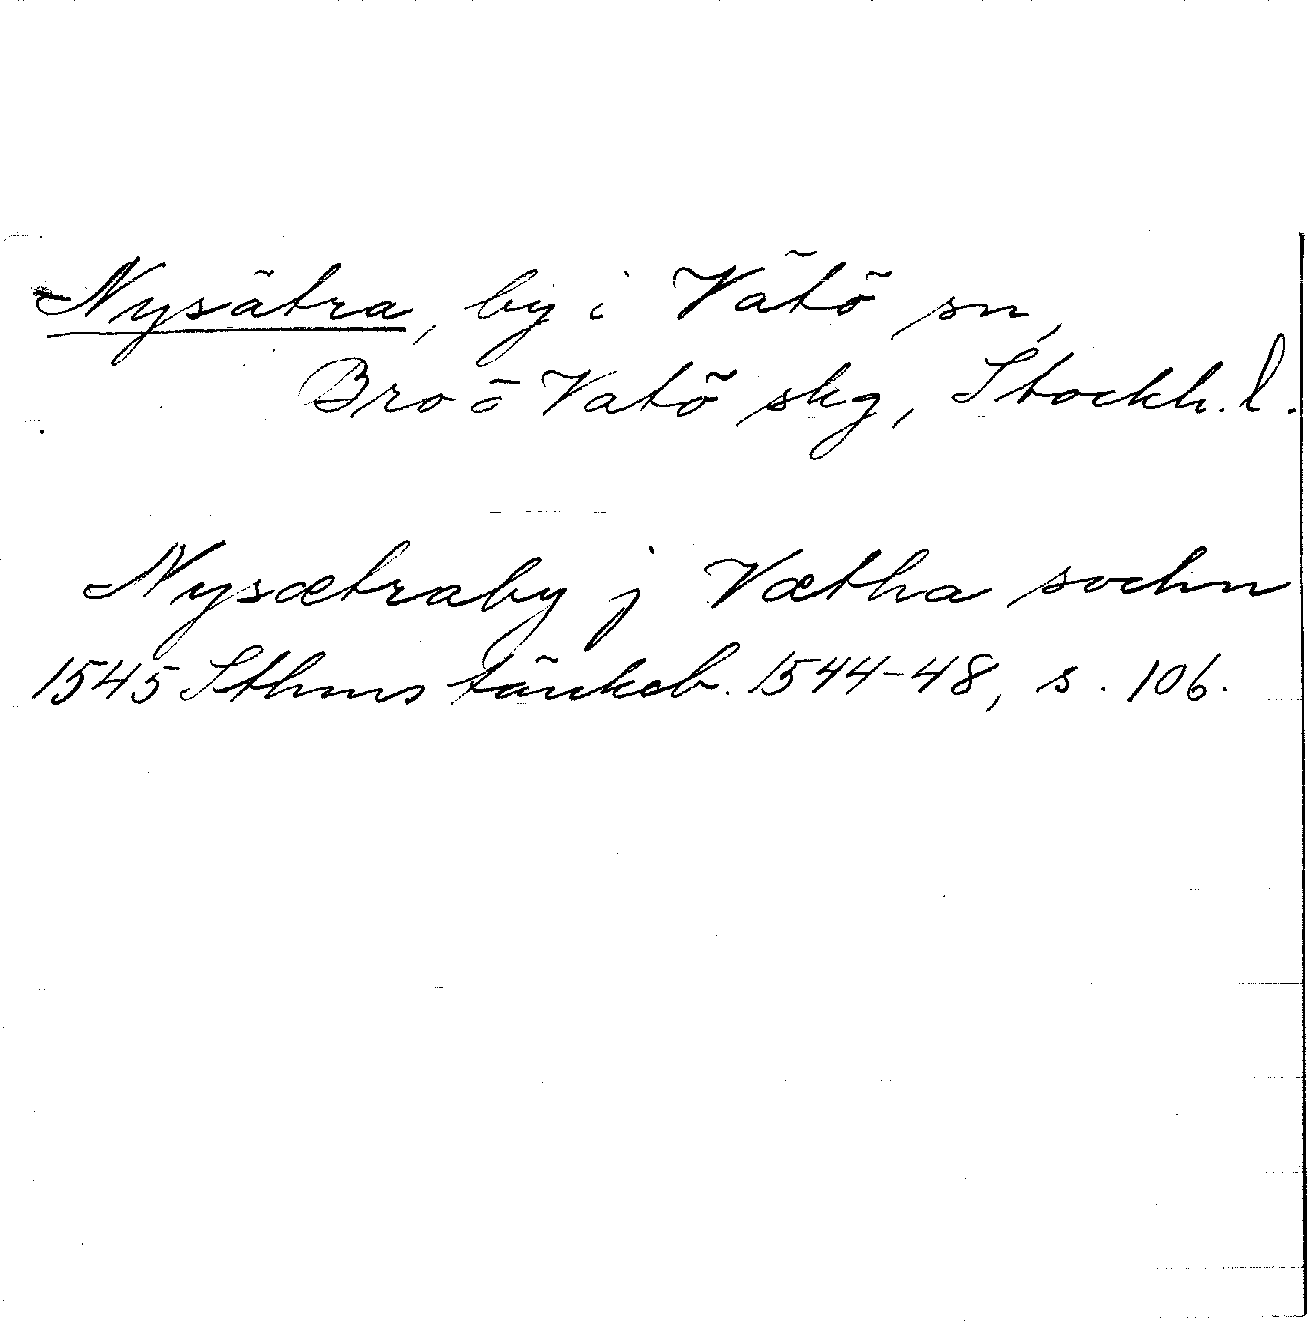 Nysätra, by i Vätö sn,
Bro o Vatö skg, Stockh. l.
Nysætraby j Vætha sochn
1545 Sthms tänkeb. 1544-48, s. 106.